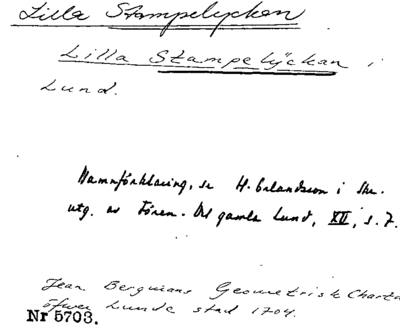 Lilla Stampelycken
Lilla Stampelÿckan i
Lund.
Namnförklaring, se H. Erlandsson i Skr.
utg. av Fören. Det gamla Lund, XII, s. 7.
Jean Bergmans Geometrisk Charta
öfwer Lunde stad 1704.
Nr 5703.